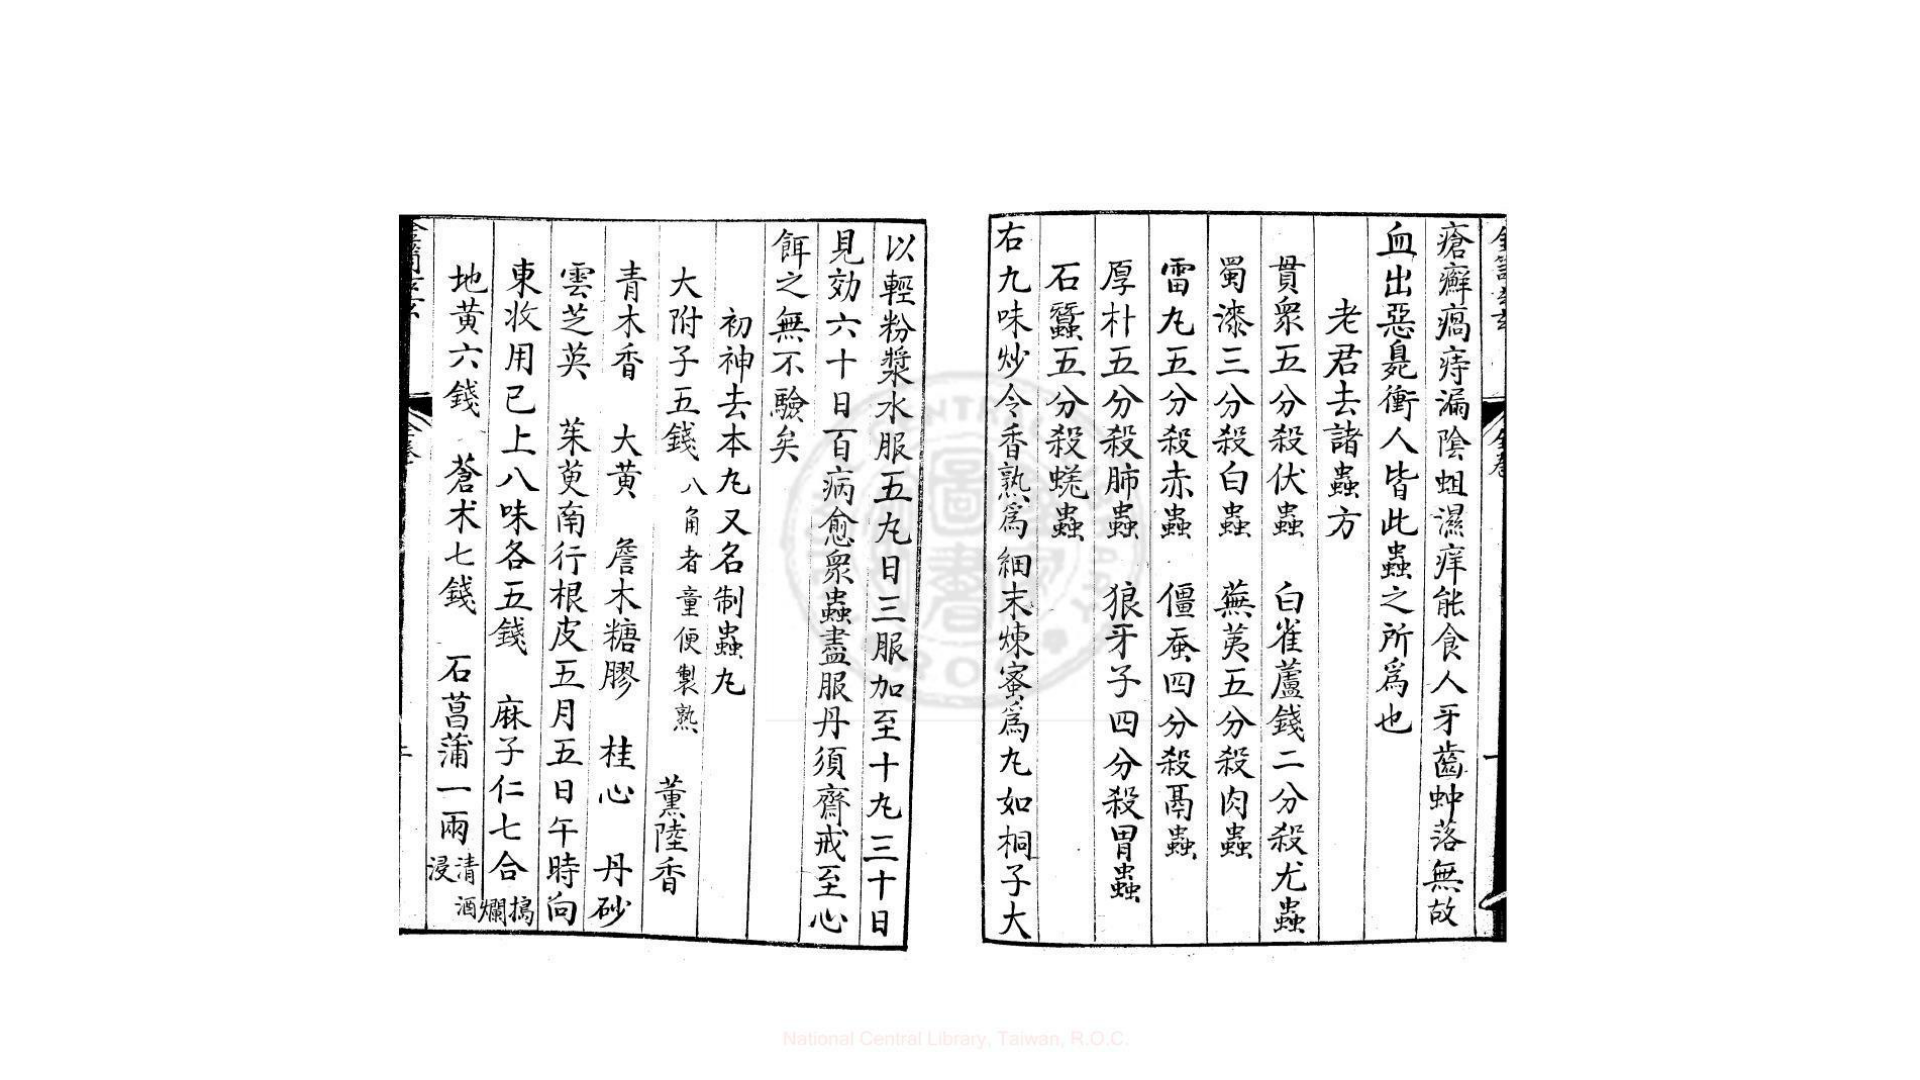 瘡癬瘑痔漏陰蛆濕痒能食人牙齒蚛落無故
血出惡臰衝人皆此蟲之所爲也
老君去諸蟲方
貫眾五分殺伏蟲 白雀蘆錢二分殺尤蟲
蜀漆三分殺白蟲 蕪荑五分殺肉蟲
雷九五分殺赤蟲 僵蚕四分殺鬲蟲
厚朴五分殺肺蟲 狼牙子四分殺胃蟲
石蠶五分殺蜣蟲
右九味炒令香熟爲細末煉蜜爲九如桐子大
以輕粉漿水服五九日三服加至十九三十日
見効六十日百病愈眾蟲盡服丹須齋戒至心
餌之無不驗矣
初神去本九又名制蟲九
大附子五錢 八角者童便製熟 薰陸香
青木香 大黄 詹木糖膠 桂心 丹砂
雲芝英 茱萸南行根皮五月五日午時向
東收用已上八味各五錢 麻子仁七合 搗爛
地黄六錢 蒼术七錢 石菖蒲一兩 清酒浸
National Central Library, Taiwan, R.O.C.